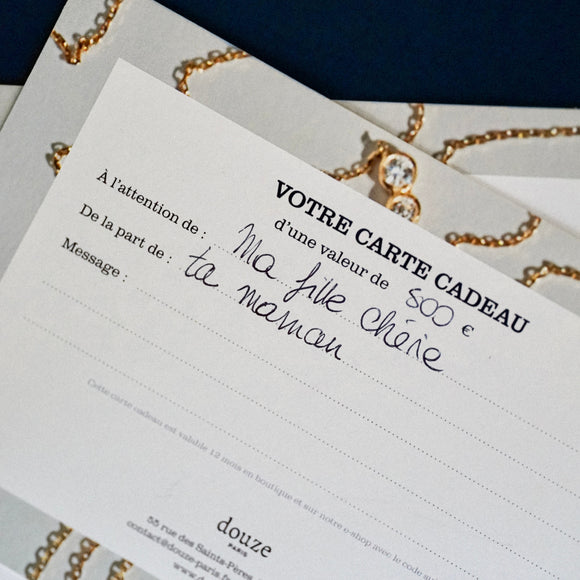 VOTRE CARTE CADEAU
d'une valeur de 500 €
À l'attention de : Ma fille chérie
De la part de : ta maman
Message :
Cette carte cadeau est valable 12 mois en boutique et sur notre e-shop avec le code
douze
PARIS
55 rue des Saints-Pères
contact@douze-paris.f
www.d